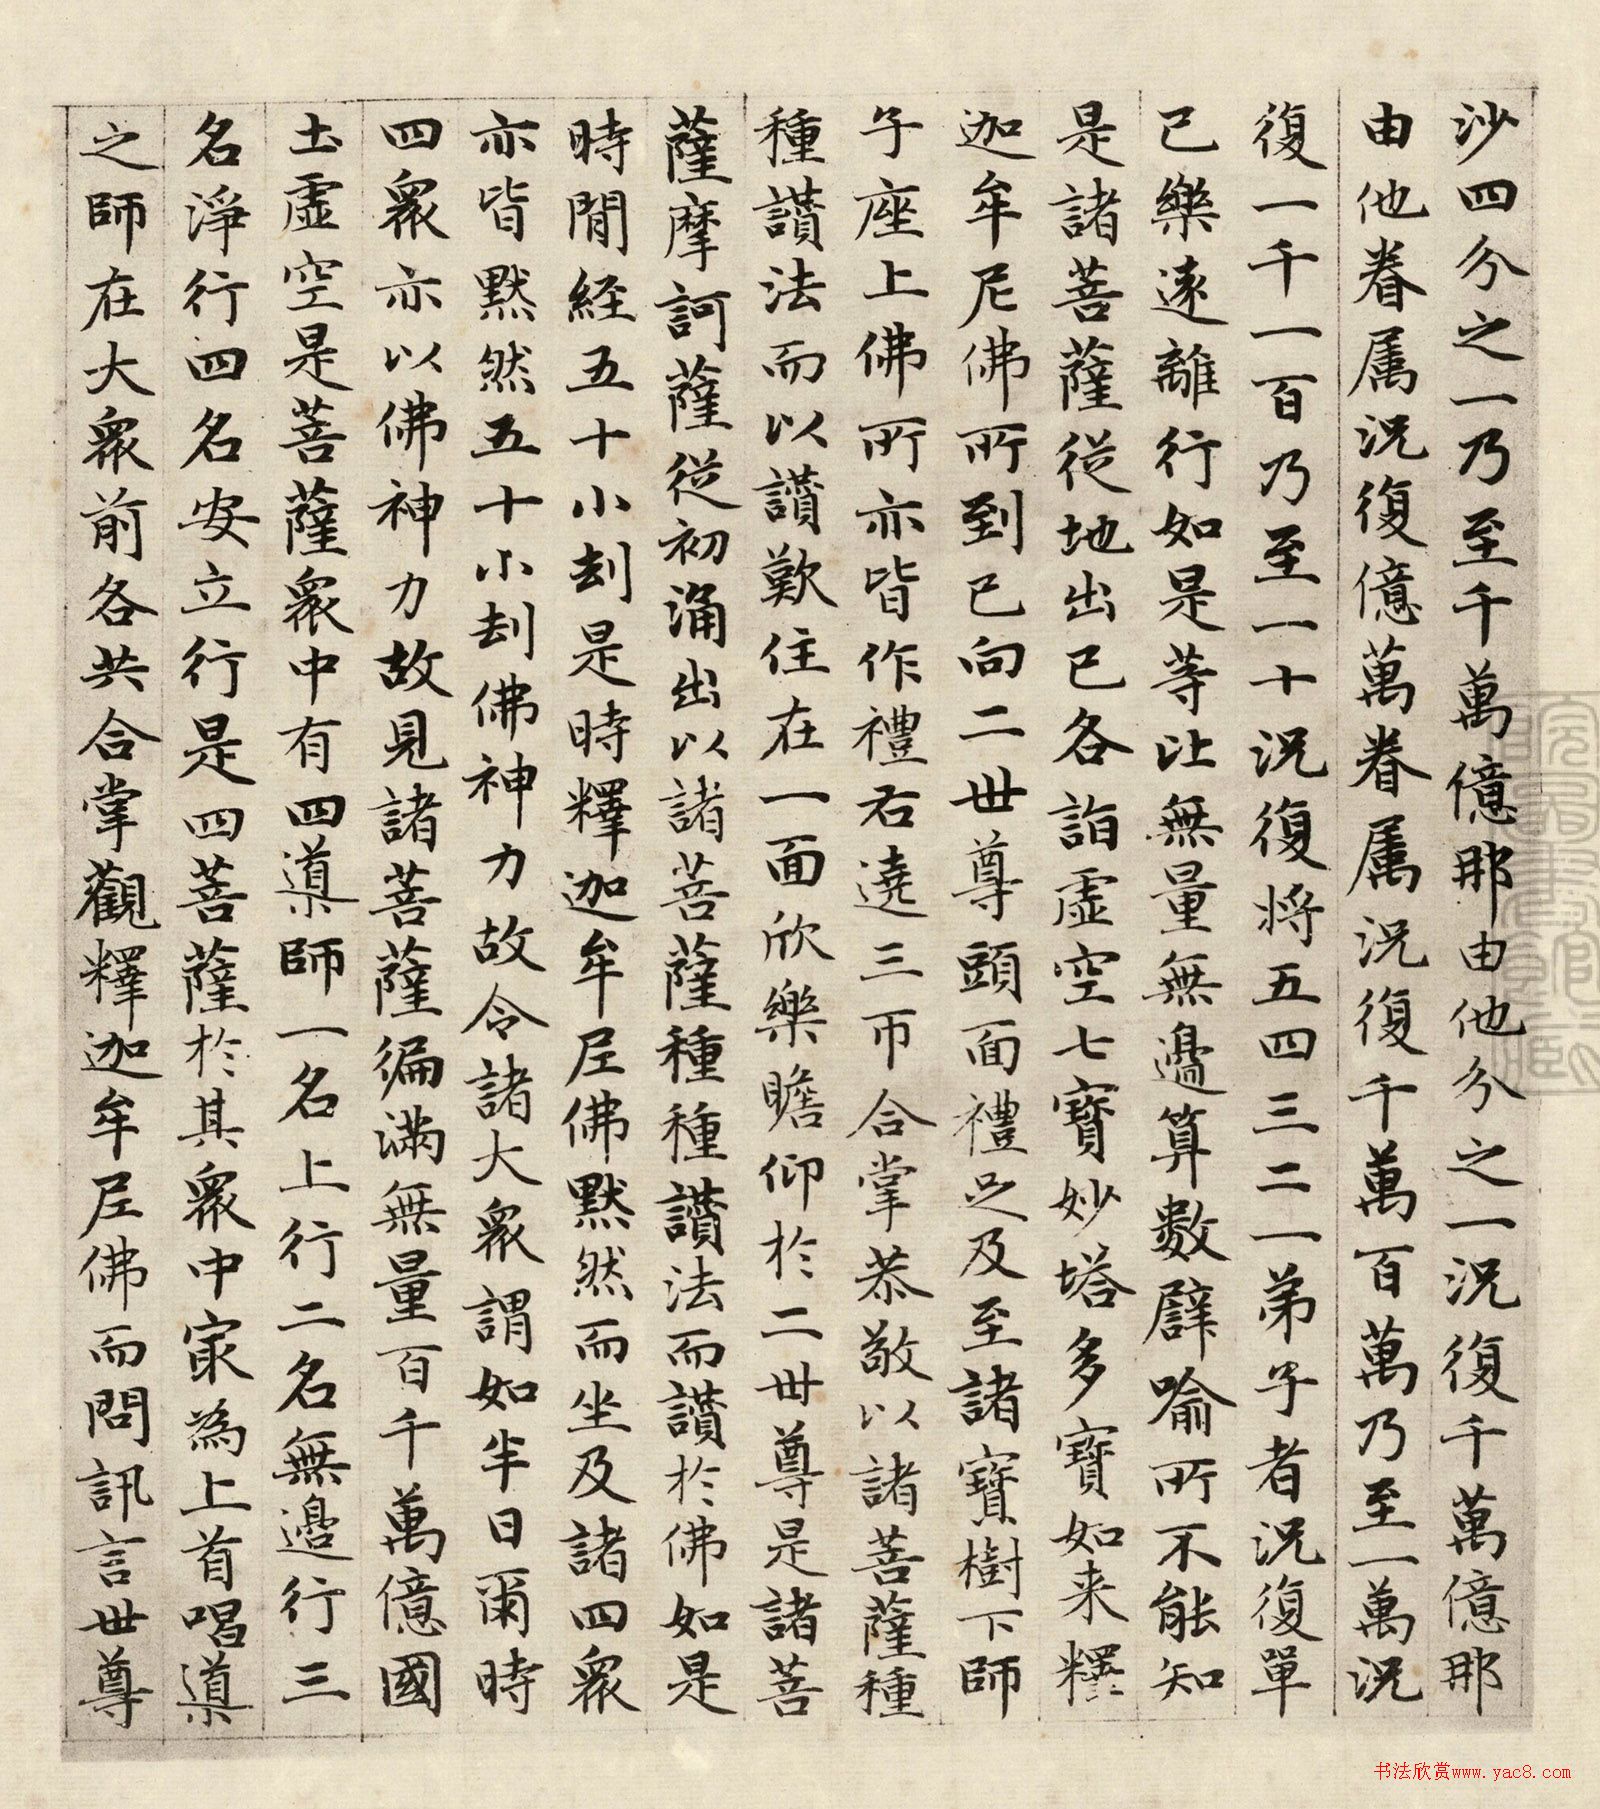 沙四分之一乃至千萬億那由他分之一況復千萬億那
由他眷属況復億萬眷属況復千萬百萬乃至一萬況
復一千一百乃至一十況復将五四三二一弟子者況復單
已樂遠離行如是等比無量無邊算數譬喻所不能知
是諸菩薩從地出已各詣虛空七寶妙塔多寶如来釋
迦牟尼佛所到已向二世尊頭面禮足及至諸寶樹下師
子座上佛所亦皆作禮右遶三帀合掌恭敬以諸菩薩種
種讚法而以讚歎住在一面欣樂瞻仰於二世尊是諸菩
薩摩訶薩從初涌出以諸菩薩種種讚法而讚於佛如是
時間經五十小刼是時釋迦牟尼佛默然而坐及諸四眾
亦皆默然五十小刼佛神力故令諸大眾謂如半日爾時
四眾亦以佛神力故見諸菩薩徧滿無量百千萬億國
土虛空是菩薩眾中有四導師一名上行二名無邊行三
名淨行四名安立行是四菩薩於其眾中㝡為上首唱導
之師在大眾前各共合掌觀釋迦牟尼佛而問訊言世尊
书法欣赏www.yac8.com